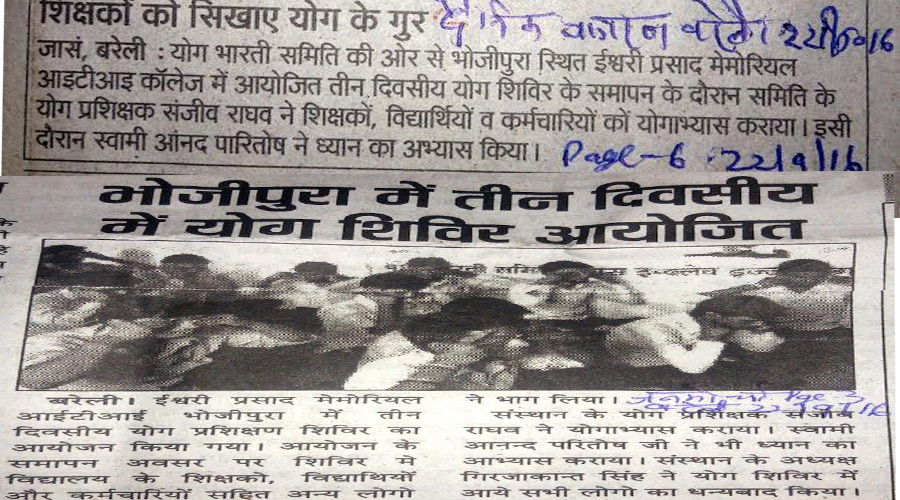 शिक्षकों को सिखाए योग के गुर
जासं, बरेली : योग भारती समिति की ओर से भोजीपुरा स्थित ईश्वरी प्रसाद मेमोरियल
आइटीआइ कॉलेज में आयोजित तीन दिवसीय योग शिविर के समापन के दौरान समिति के
योग प्रशिक्षक संजीव राघव ने शिक्षकों, विद्यार्थियों व कर्मचारियों को योगाभ्यास कराया। इसी
दौरान स्वामी आंनद पारितोष ने ध्यान का अभ्यास किया।
Page-6 22/9/16
भोजीपुरा में तीन दिवसीय
में योग शिविर आयोजित
बरेली। ईश्वरी प्रसाद मेमोरियल
आईटीआई भोजीपुरा में तीन
दिवसीय योग प्रशिक्षण शिविर का
आयोजन किया गया। आयोजन के
समापन अवसर पर शिविर में
विद्यालय के शिक्षको, विद्यार्थियों
और कर्मचारियों सहित अन्य लोगो
ने भाग लिया।
संस्थान के योग प्रशिक्षक
राघव ने योगाभ्यास कराया। स्वामी
आनन्द परितोष जी ने भी ध्यान का
आभ्यास कराया। संस्थान के अध्यक्ष
गिरजाकान्त सिंह ने योग शिविर में
आये सभी लोगो का धन्यबाद किया।